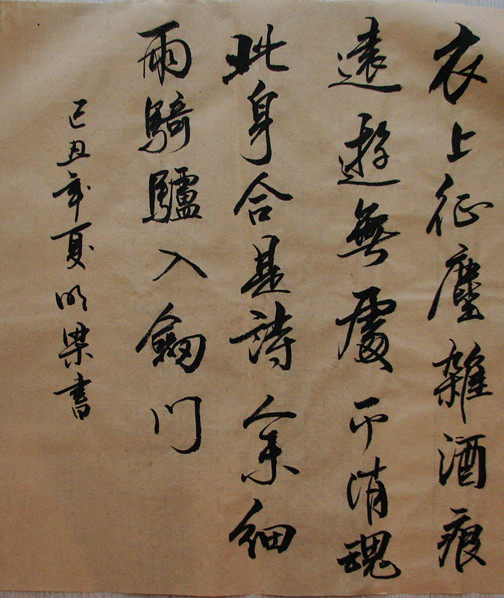 衣上征塵雜酒痕
遠遊無處不消魂
此身合是詩人未細
雨騎驢入劍門
己丑年夏明梁書